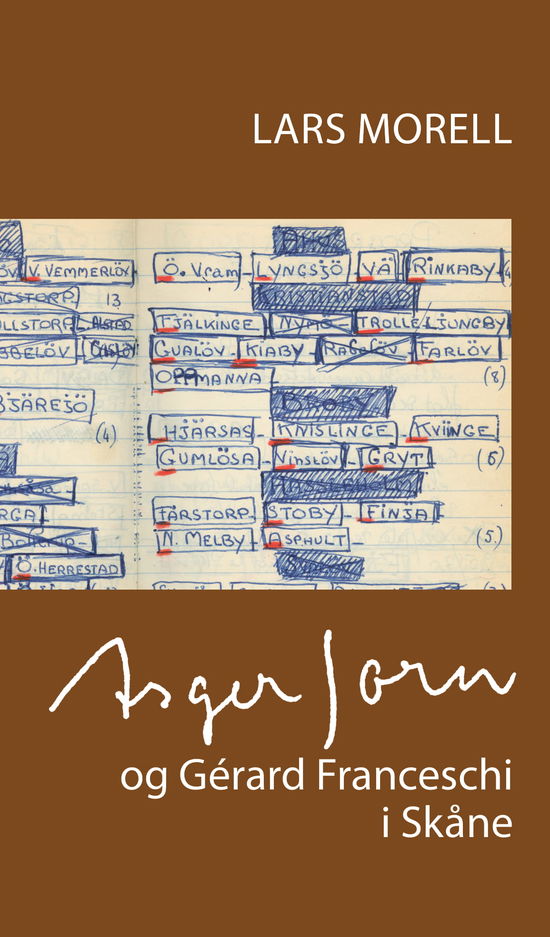 LARS MORELL
V. VEMMERLÖV
13
BJÄRESJÖ
(4)
Ö. HERRESTAD
Ö. Vram - LYNGSJÖ VÄ RINKABY
FJÄLKINGE NYMÖ TROLLE LJUNGBY
GUALÖV KIABY FARLÖV
OPPMANNA (8)
HJÄRSAS - KNISLINGE - KVIINGE
GUMLÖSA Vinslöv - GRYT (6)
FÄRSTORP STOBY - FINJA
N. MELBY ASPHULT - (5.)
Asger Jorn
og Gérard Franceschi
i Skåne